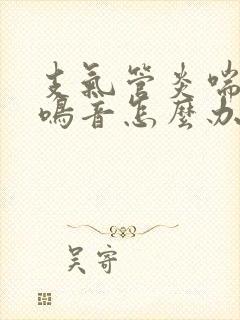 支氣管炎喘
鳴音怎麼办
吴寄